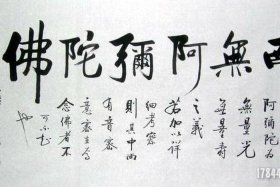 無阿彌陀佛
阿彌陀為
無量光
無量壽
之義
若加以詳
細考察
則其中尚
有音密
意密等為
念佛者不
可不
也
1784